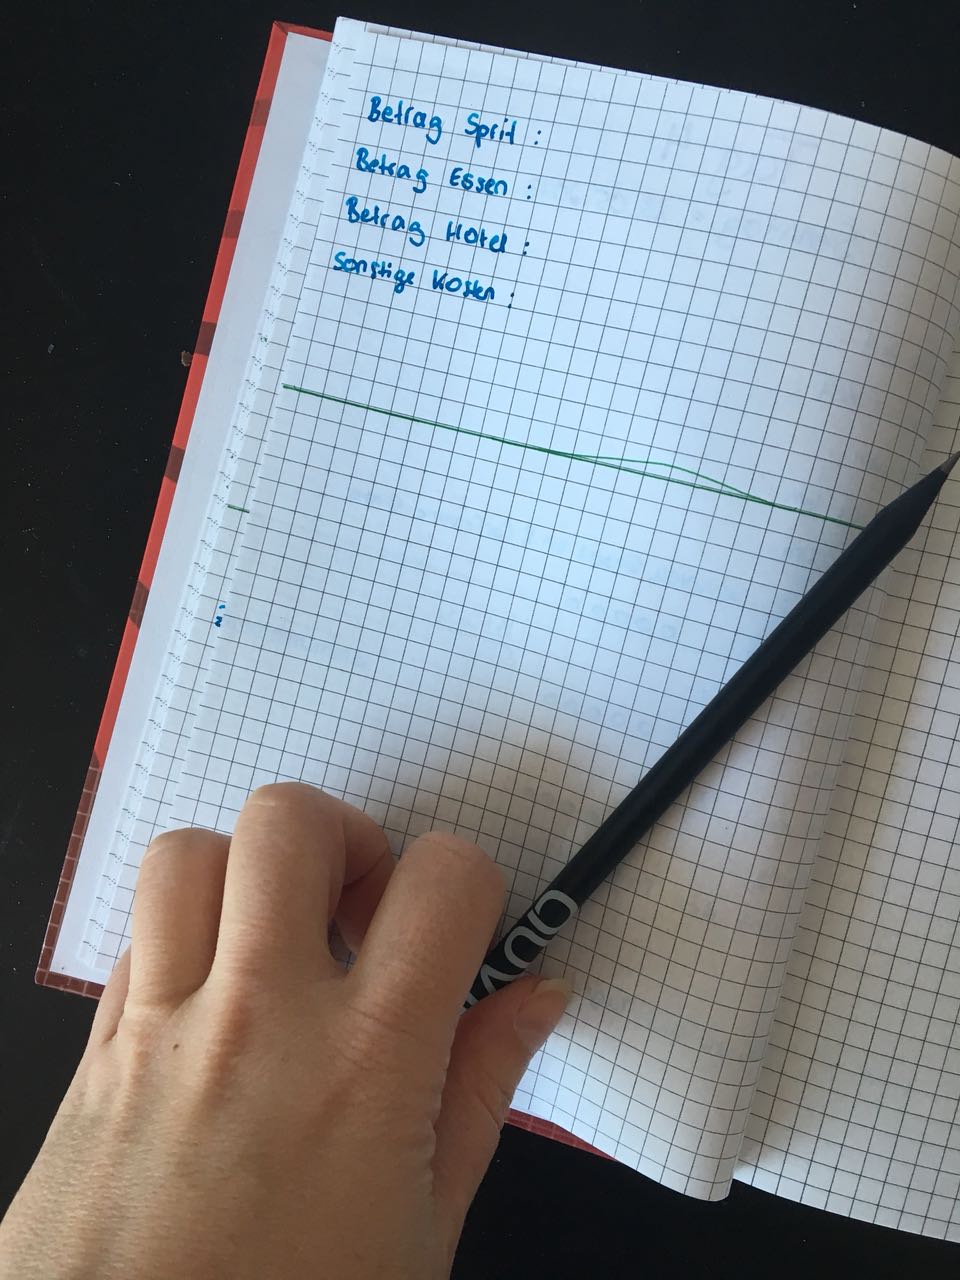 Betrag Sprit :
Betrag Essen :
Betrag Hotel :
Sonstige Kosten :